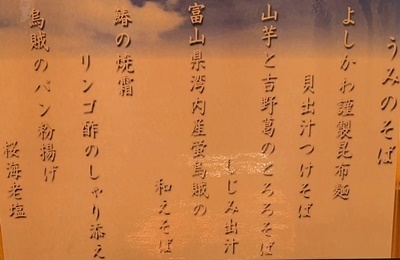 うみのそば
よしかわ謹製昆布麺
貝出汁つけそば
山芋と吉野葛のとろろそば
しじみ出汁
富山県湾内産蛍烏賊の
和えそば
鰆の焼霜
リンゴ酢のしゃり添え
烏賊のパン粉揚げ
桜海老塩